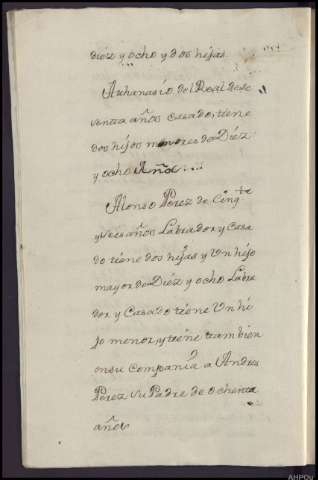 diéz y ocho y dos hijas
Athanasio del Real de se
senta años Casado, tiene
dos hijos menores de Diéz
y ocho Años...
Alonso Pérez de Cinqte
y tres años Labrador y Casa
do tiene dos hijas y Un hijo
mayor de Diéz y ocho Labra
dor y Casado tiene Un hi
jo menor, y tiene tambien
en su Compania a Andres
Pérez su Padre de ochenta
años
AHPOu